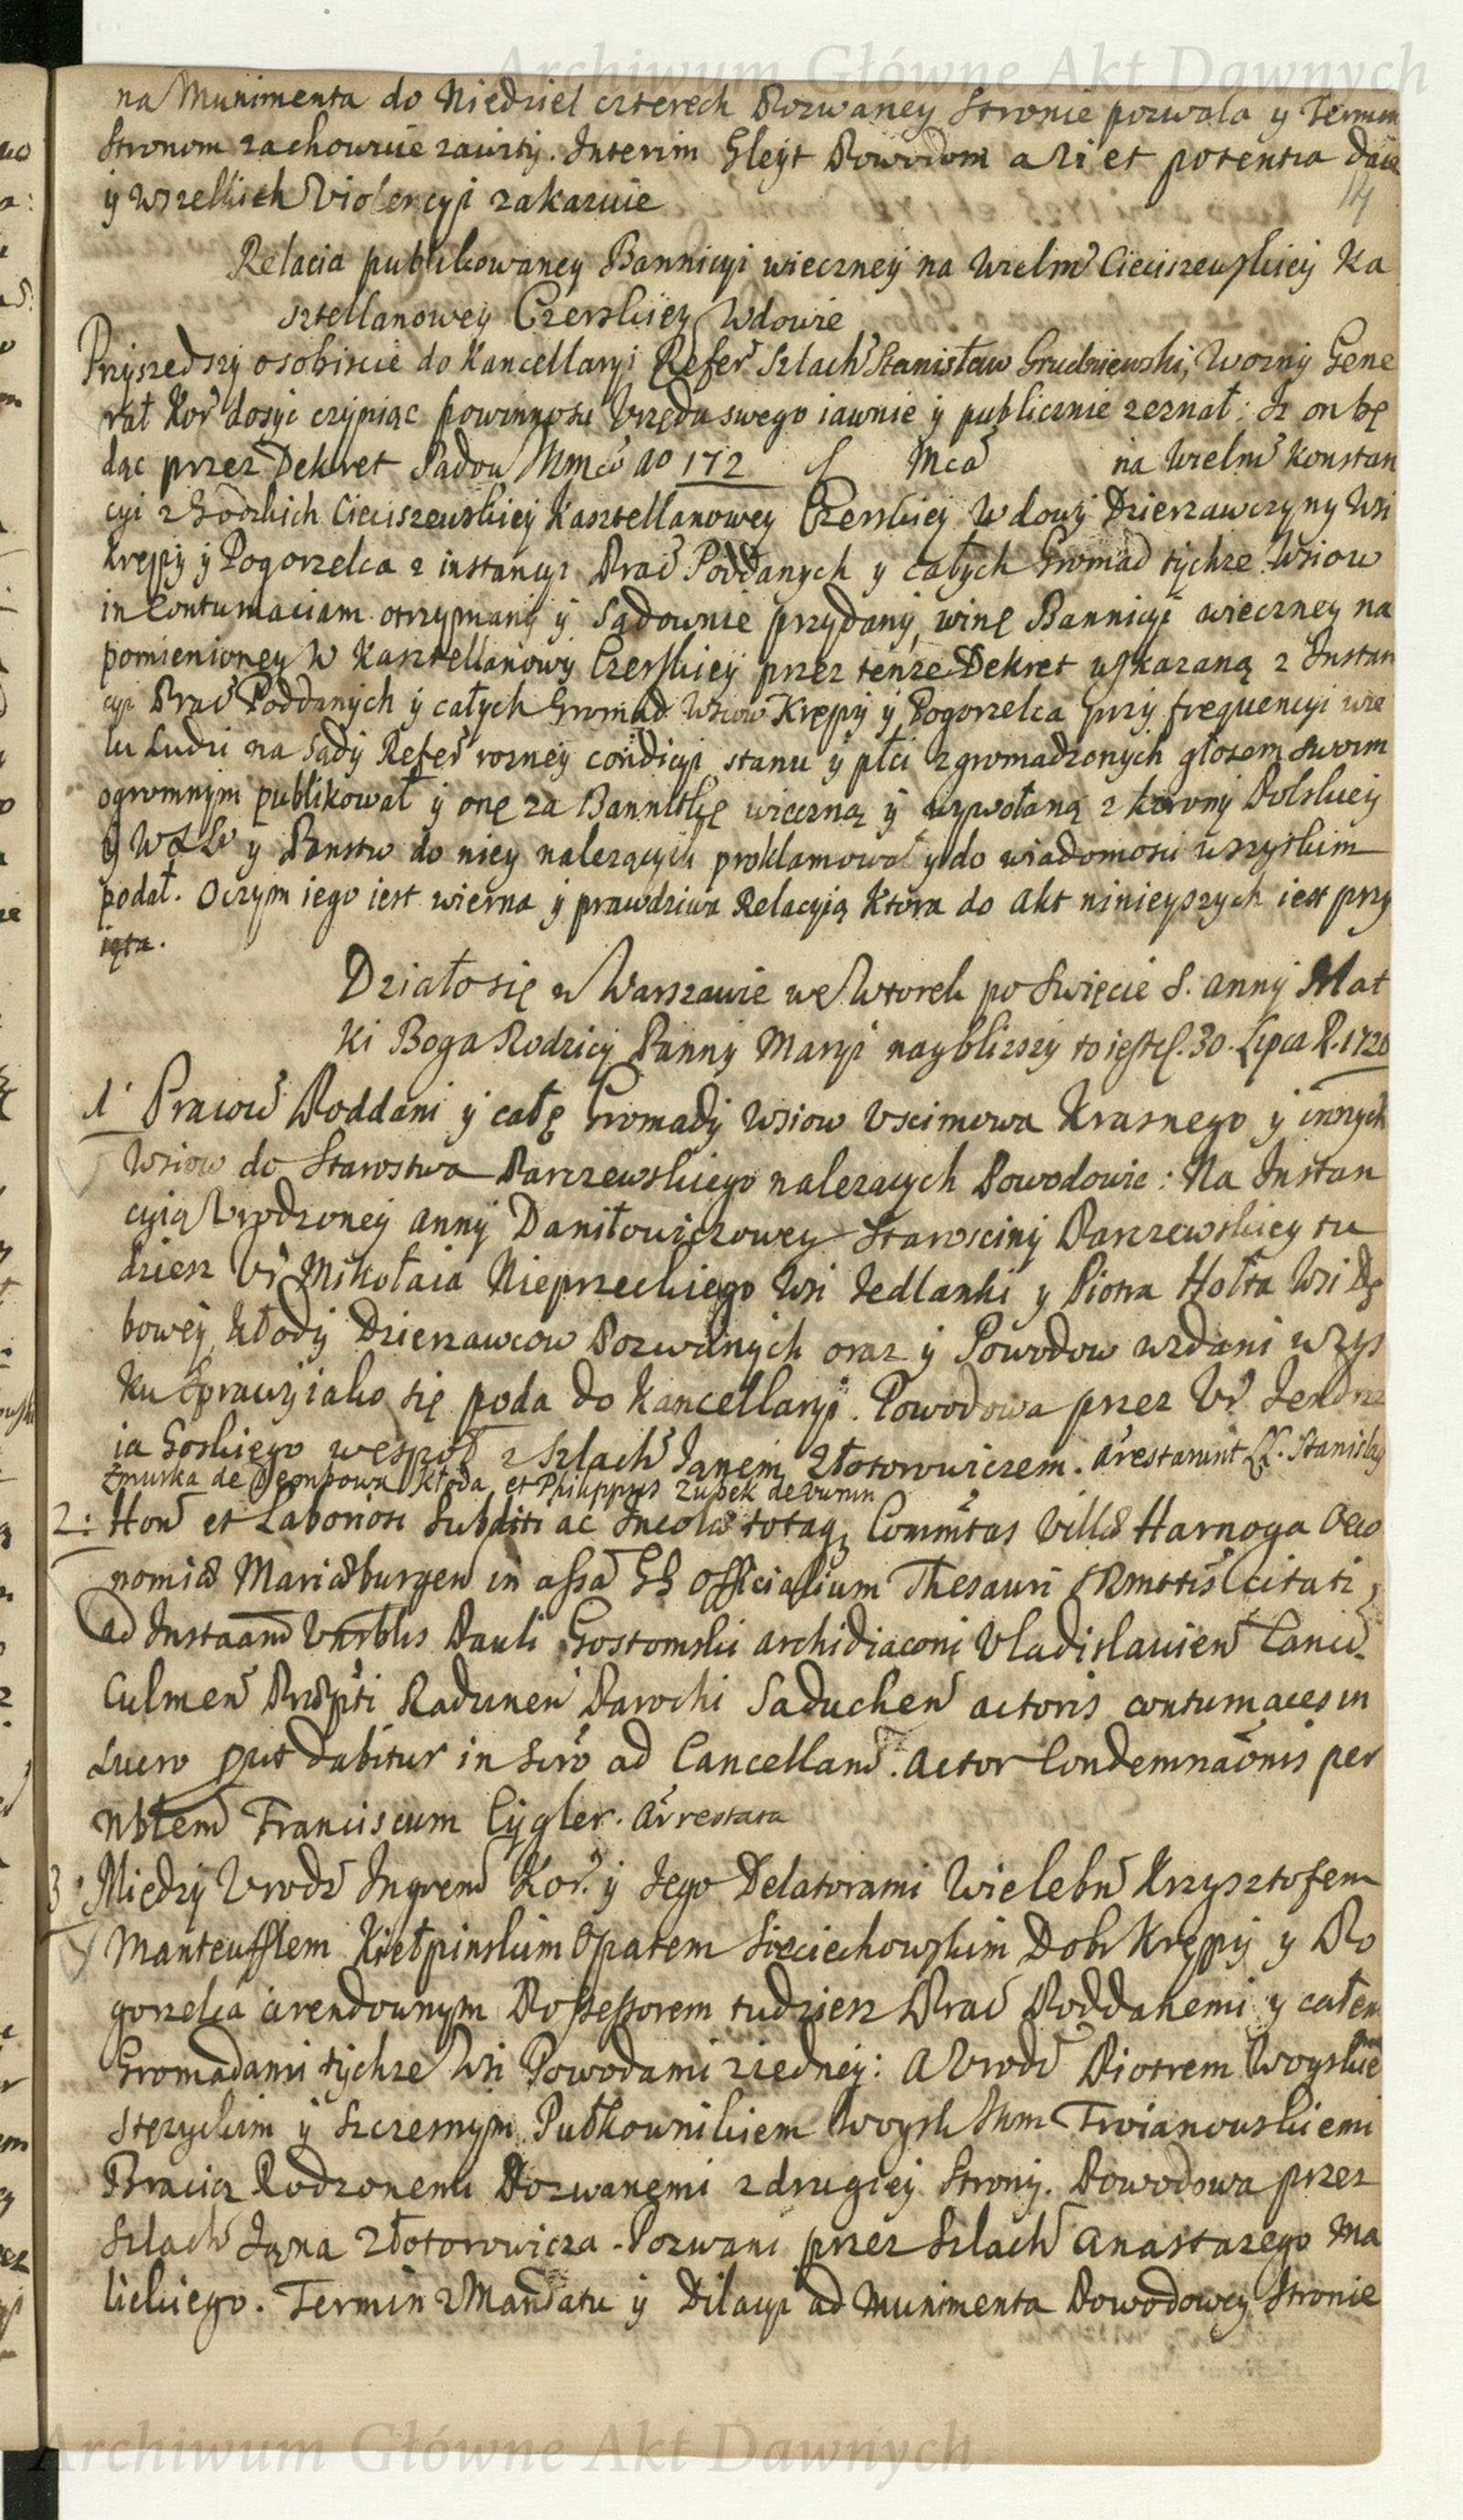 Archiwum Główne Akt Dawnych
na Munimenta do Niedziel czterech Pozwaney Stronie pozwala y Termin
Stronom zachowuie zawity. Interim Gleyt Powodom a vi et potentia daie
y wszelkich Violencyi zakazuie
14
Relacia publikowaney Bannicyi wieczney na Wielm Cieciszewskiey Ka
sztellanowey Czerskiey Wdowie
Przyszedszy osobiscie do Kancellaryi Refer Szlach Stanisław Grudniewski, Wozny Gene
rał Kor dosyc czyniąc powinnosci Vrzędu swego iawnie y publicznie zeznał: Iz on bę
dąc przez Dekret Sądow Mmci ao 172 d Mca na Wielm Konstan
cyi z Gorskich Cieciszewskiey Kasztellanowey Czerskiey Wdowy Dzierzawczyny Wsi
Krępy y Pogorzelca z instancyi Prac Poddanych y całych Gromad tychze Wsiow
in Contumaciam otrzymany y Sądownie przydany, winę Bannicyi wieczney na
pomienioney W Kasztellanowy Czerskiey przez tenze Dekret wskazaną z Instan
cyi Prac Poddanych y całych Gromad Wsiow Krępy y Pogorzelca przy frequencyi wie
lu Ludzi na Sądy Refer rozney condicyi stanu y płci zgromadzonych głosem swoim
ogromnym publikował y onę za Bannitkę wieczną y wywołaną z Korony Polskiey
y WXL y Panstw do niey nalezących proklamował y do wiadomosci wszystkim
podał. Oczym iego iest wierna y prawdziwa Relacyia Ktora do Akt ninieyszych iest przy
ięta.
Działo się w Warszawie we Wtorek po Swięcie S. Anny Mat
ki Boga Rodzicy Panny Maryi naybliższy to iest d. 30. Lipca R. 1720
1 Pracow Poddani y całę Gromady Wsiow Vscimowa Krasnego y innych
Wsiow do Starostwa Parczewskiego nalezących Powodowie: Na Instan
cyią Vrodzoney Anny Daniłowiczowey Starosciny Parczewskiey tu
dziesz Vr Mikołaia Nieprzeckiego Wsi Jedlanki y Piotra Hołta Wsi Dę
bowey Kłody Dzierzawcow Pozwanych oraz y Powodow wzdani w zys
ku Sprawy iako się poda do Kancellaryi. Powodowa przez Vr Jendrze
ia Goskiego wespoł z Szlach Janem Złotorowiczem. Arestarunt LL. Stanislaus
Zmurka de Dembowa Kłoda et Philippus Zubek de
2: Hon et Laboriosi Subditi ac Incolæ totaq Commtas Villæ Harnoga Oeco
nomiæ Mariæburgen in assa GG Officialium Thesauri SRmttis citati
ad Instaam Vnrblis Pauli Gostomski Archidiaconi Vladislavien Canci
Culmen Præpti Radzinen Parochi Saduchen actoris contumaces in
Lucro put dabitur in scro ad Cancellam. Actor Condemnaonis per
Nblem Franciscum Cygler. Arrestata
3 Między Vrodz Ingrem Kor. y Jego Delatorami Wielebn Krzysztofem
Manteufflem Kiełpinskim Opatem Sieciechowskim Dobr Krępy y Po
gorzelca arendownym Possessorem tudziesz Prac Poddanemi y całem
Gromadami tychze Wsi Powodami z iedney: A Vrodz Piotrem Woyskie
Stęzyckim y Szczesnym Pułkownikiem Woysk Jkm Troianowskiemi
Bracią Rodzonemi Pozwanemi z drugiey Strony. Powodowa przez
Szlach Jana Złotorowicza. Pozwani przez Szlach Anastazego Ma
lickiego. Termin z Mandatu y Dilacyi ad Munimenta Powodowey Stronie
Archiwum Główne Akt Dawnych